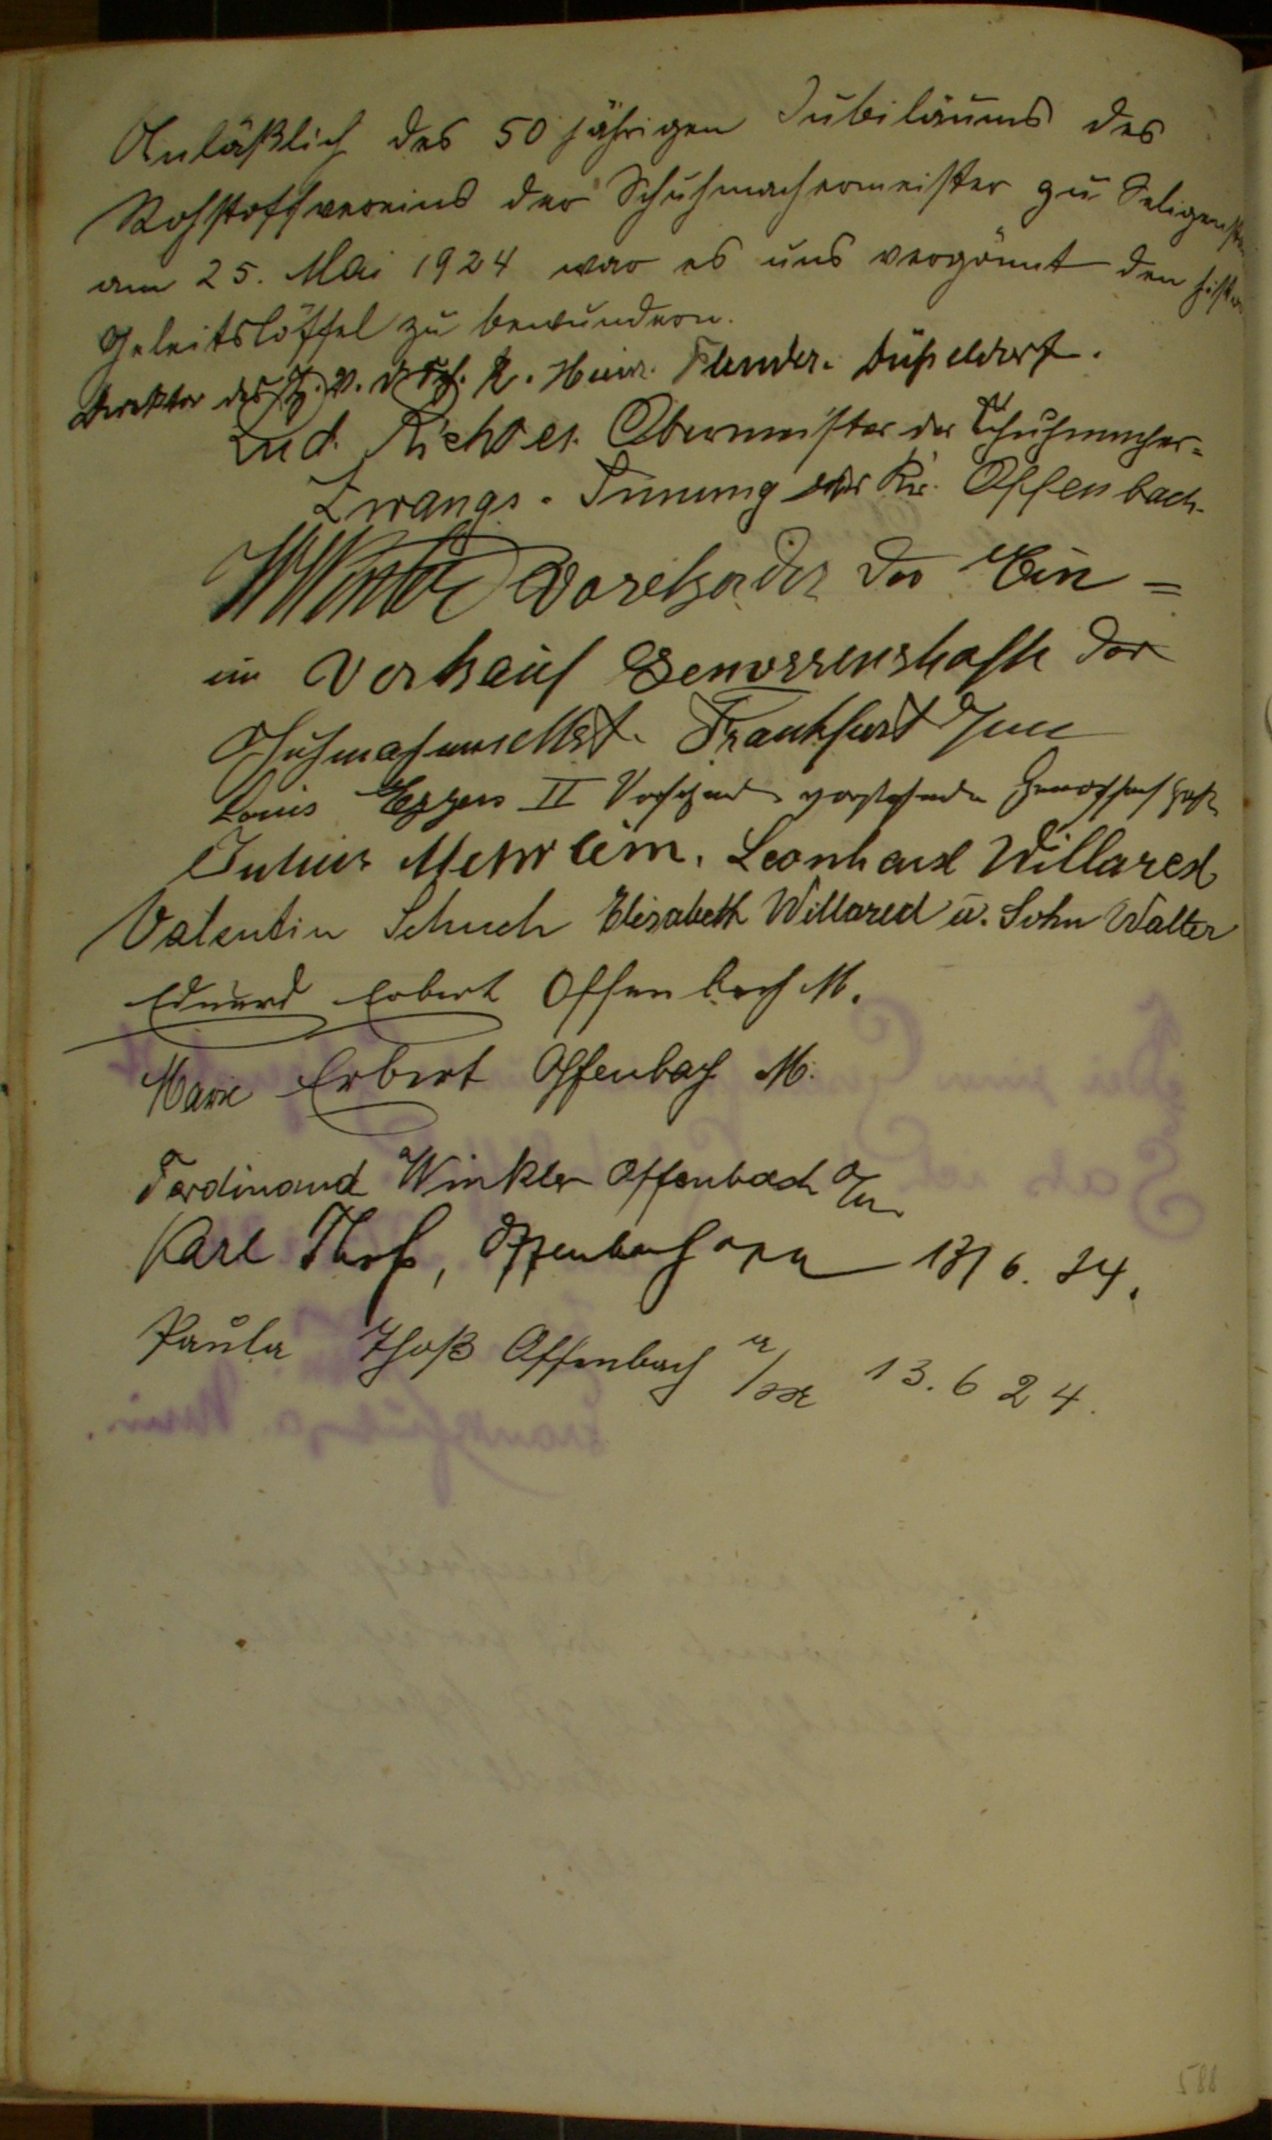 Anläßlich des 50 jährigen Jubiläums des
Rohstoffvereins der Schuhmachermeister zu Seligenst
am 25. Mai 1924 war es uns vergönnt den histor
Geleitslöffel zu bewundern.
Direktor des R. Heinr. Flender. Düsseldorf.
Lud. Richter Obermeister der Schuhmacher-
Zwangs-Innung Kr. Offenbach.
Vorsitzender der Ein=
Verkauf Genossenschaft der
Schuhmacher Frankfurt
Louis Eggers II Vorsitzender vorstehender Genossenschaft
Julius Leonhard Willared
Valentin Schuch Elisabeth Willared u. Sohn Walter
Eduard Erbert Offenbach M.
Marie Erbert Offenbach M.
Ferdinand Winkler Offenbach a/m
Karl Thoß, Offenbach 13/6. 24.
Paula Thoß Offenbach a/M 13. 6 24.
588